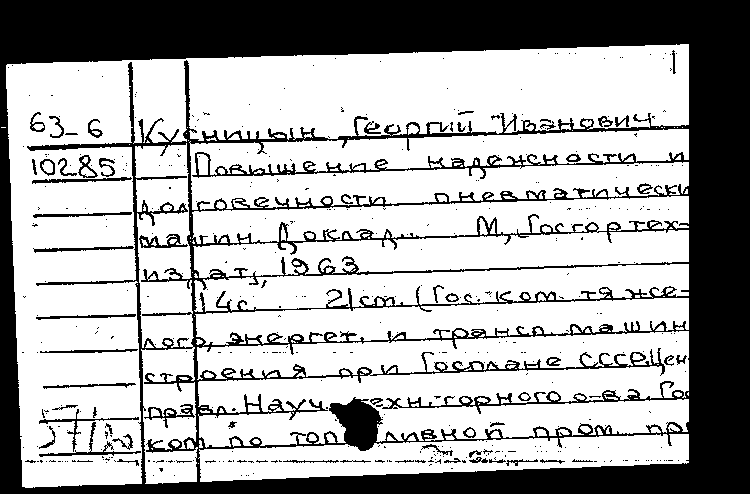 63-6 Кусницын, Георгий Иванович
10285 Повышение надежности и
долговечности пневматически
машин. Доклад.. М, Госгортех-
издат, 1963
14с. 21ст. (Гос. ком. тяже-
лого, энергет. и трансп. машин
строения при Госплане СССР. Цен
правл. Науч. техн. горного о-ва. Гос
ком. по топ ливной пром. пр